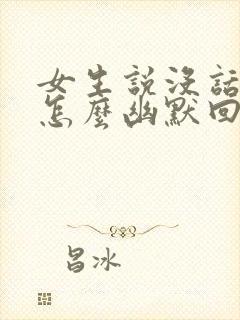 女生説没話
怎麼幽默回
昌冰